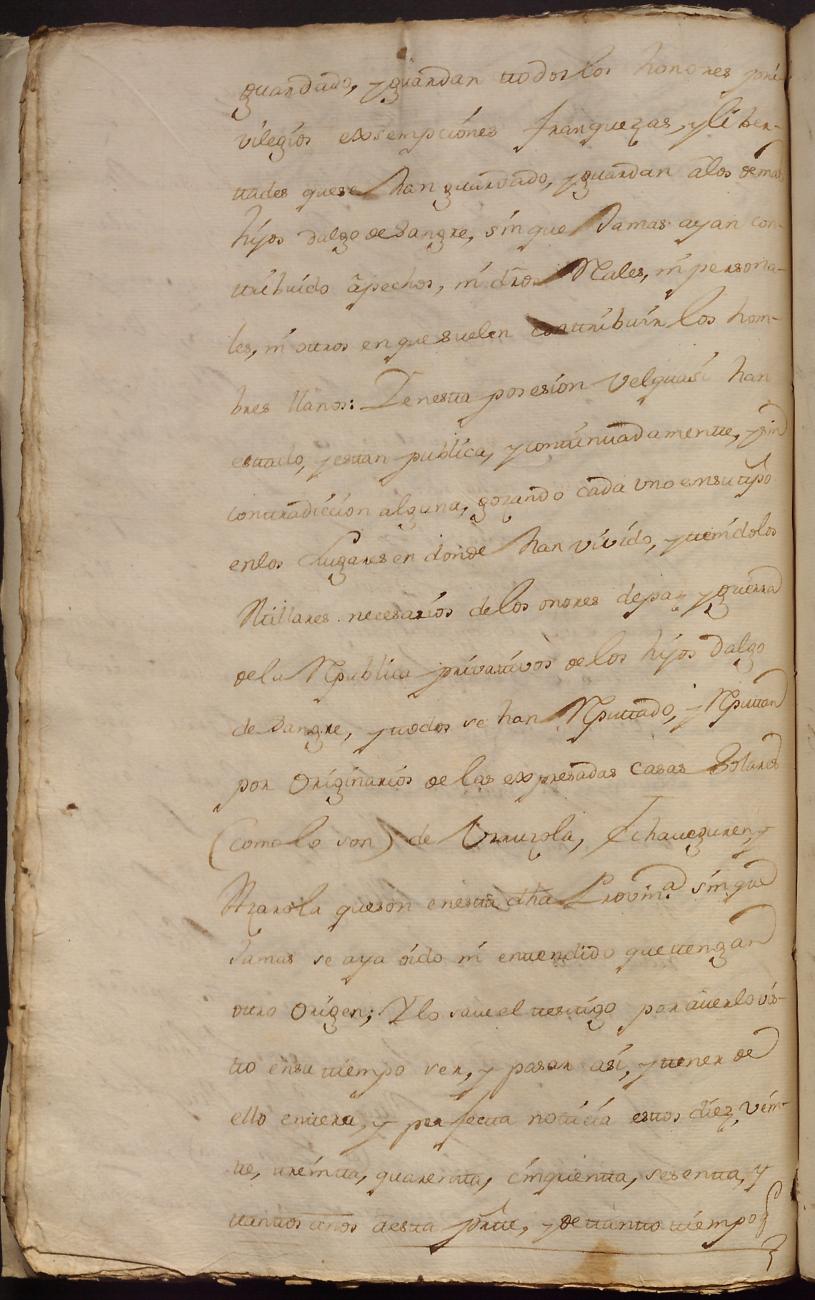 guardado, y guardan ttodos los honores pri-
vilegios exsempciones franquezas, y liber-
ttades que se han guardado, y guardan â los demas
hijos dalgo de Sangre, sin que Jamas ayan con-
ttribuido â pechos, ni dros Rales, ni persona-
les, ni ottros en que suelen conttribuir los hom-
bres llanos: Y en estta posesion velquasi han
esttado, y esttan publica, y conttinuadamentte, y sin
conttradicion alguna, gozando cada uno en su ttpo
en los Lugares en donde han vivido, y ttenidolos
Millares necesarios de los onores de paz y guerra
de la Republica privattivos de los hijos dalgo
de Sangre, y ttodos se han Reputtado, y Reputtan
por Originarios de las expresadas casas Solares
(como lo son) de Urruzola, Echaveguren, y
Mzarola que son en estta dha Provina. sin que
Jamas se aya oido ni enttendido que ttengan
ottro Origen; Y lo save el ttesttigo por averlo vis-
tto en su ttiempo ver, y pasar asi, y ttener de
ello enttera, y perfectta notticia esttos diez, vein-
tte, ttreintta, quarentta, cinquentta, sesentta, y
ttanttos años a estta partte, y de ttantto ttiempo